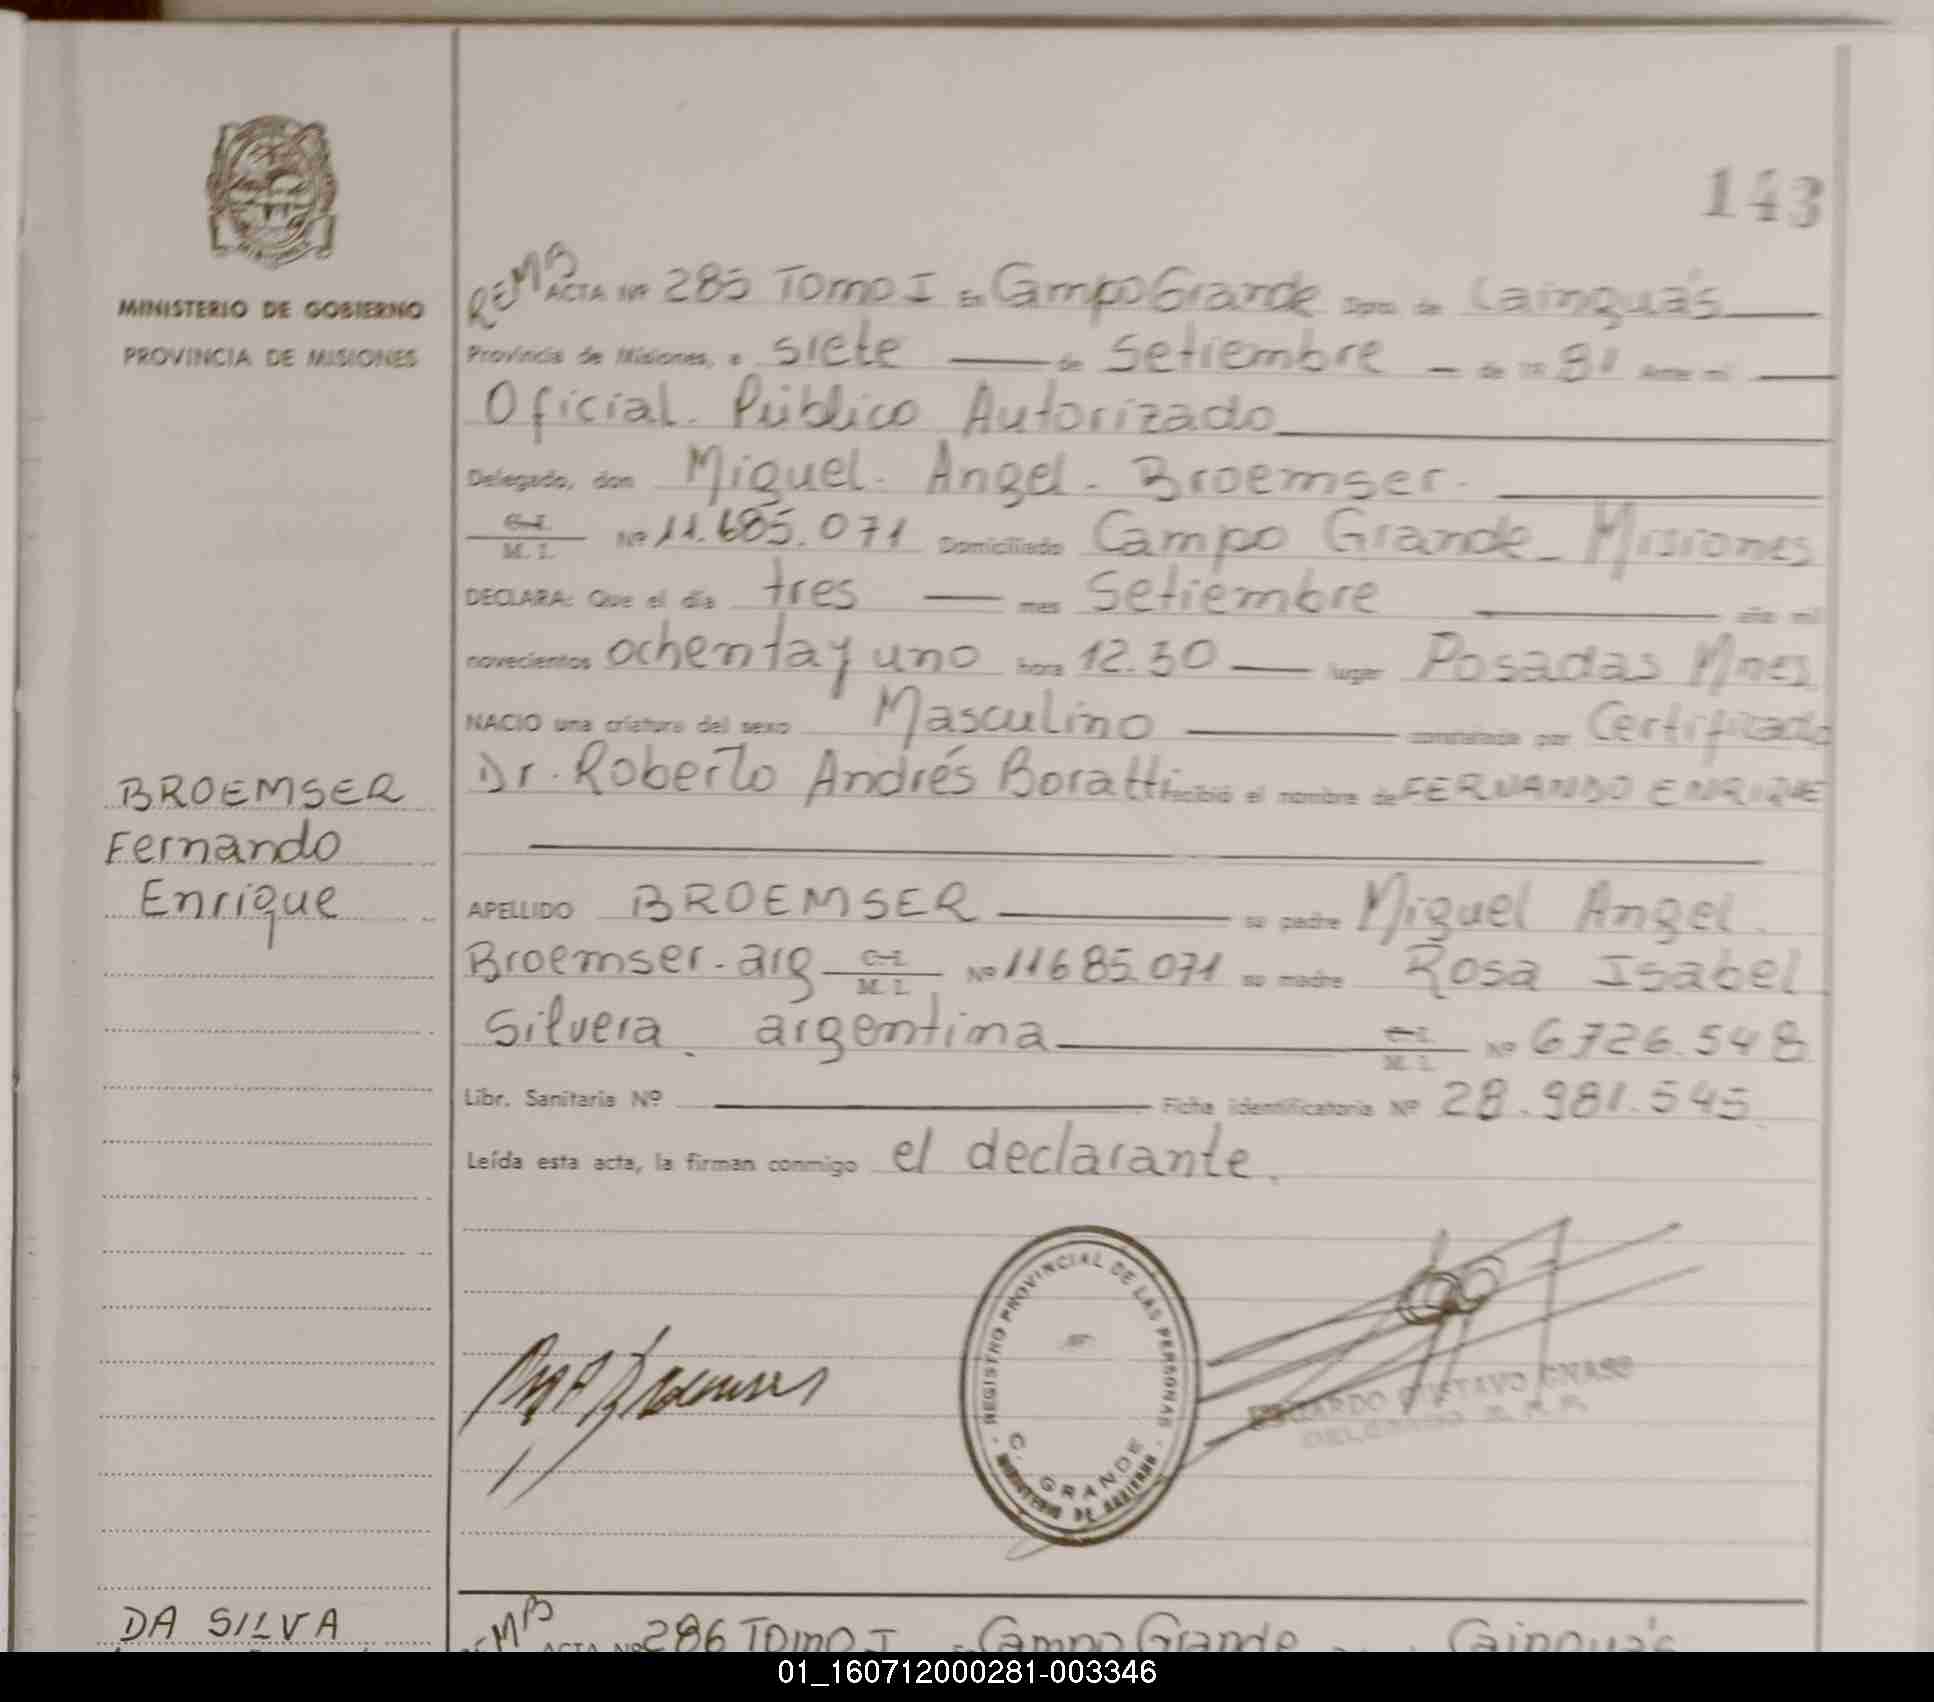 143
MINISTERIO DE GOBIERNO
PROVINCIA DE MISIONES
REMB ACTA Nº 285 Tomo I En Campo Grande Dpto. de Cainguás
Provincia de Misiones, a siete de Setiembre de 19 81 Ante mí
Oficial. Público Autorizado
Delegado, don Miguel. Angel. Broemser.
C. I.
M. I. Nº 11.685.071 Domiciliado Campo Grande_ Misiones
DECLARA: Que el día tres mes Setiembre año mil
novecientos ochenta y uno hora 12.30 lugar Posadas Mnes
NACIO una criatura del sexo Masculino constatado por Certificado
Dr. Roberto Andrés Boratti recibió el nombre de FERNANDO ENRIQUE
BROEMSER
Fernando
Enrique
APELLIDO BROEMSER su padre Miguel Angel.
Broemser. arg C. I.
M. I. Nº 11685.071 su madre Rosa Isabel
Silvera. argentina C. I.
M. I. Nº 6726.548
Libr. Sanitaria Nº Ficha identificatoria Nº 28.981.545
Leída esta acta, la firman conmigo el declarante.
REGISTRO PROVINCIAL DE LAS PERSONAS
C. GRANDE
MINISTERIO DE GOBIERNO
GUSTAVO
DELEGADO R. P. P.
DA SILVA
REMB ACTA Nº 286 Tomo I En Campo Grande Cainguás
01_160712000281-003346